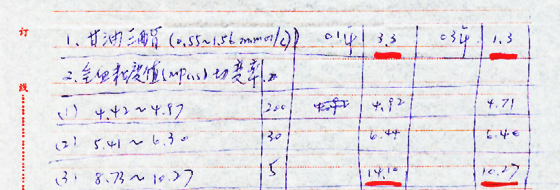 订
1、甘油三酯(0.55~1.56mmol/L) 3.3 1.3
2.全血粘度值(mpas)切变率
(1) 4.42~4.97 200 4.92 4.71
线
(2) 5.41~6.30 30 6.44 6.40
(3) 8.73~10.27 5 14.10 10.27